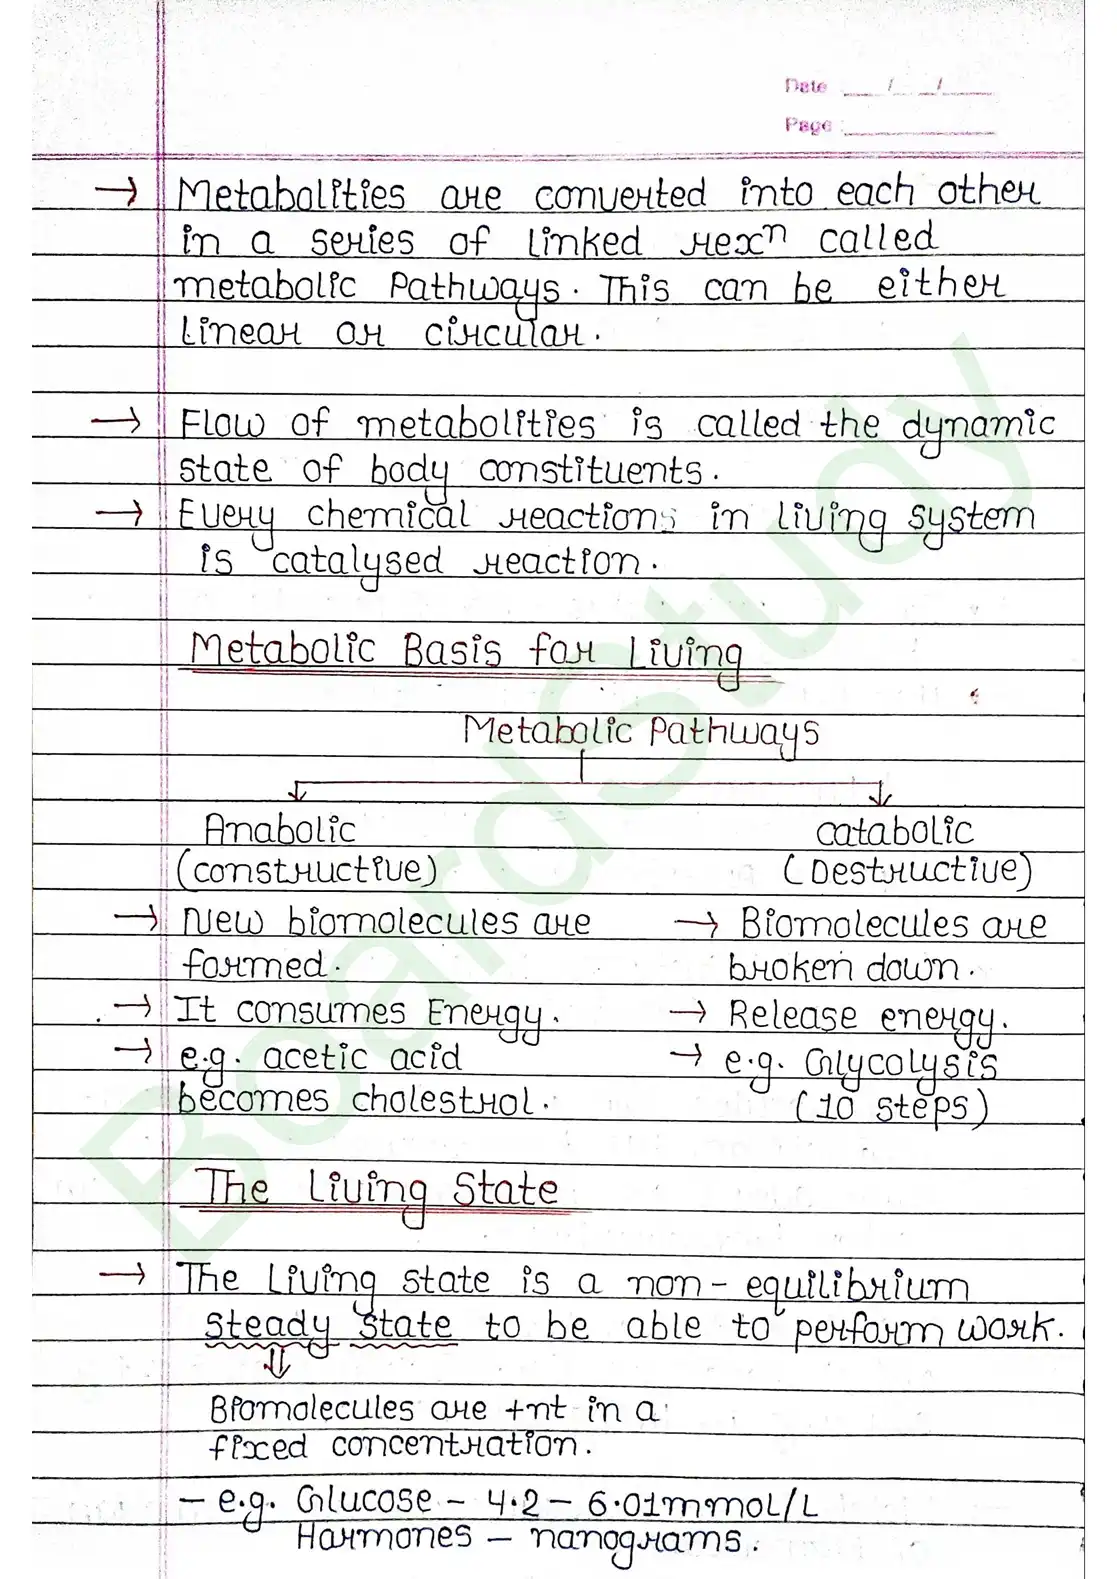 Date ___/___/___
Page ___
→ Metabolities are converted into each other
in a series of linked rexⁿ called
metabolic Pathways. This can be either
linear or circular.
→ Flow of metabolities is called the dynamic
state of body constituents.
→ Every chemical reactions in living system
is catalysed reaction.
Metabolic Basis for Living
Metabolic Pathways
Anabolic catabolic
(constructive) (Destructive)
→ New biomolecules are → Biomolecules are
formed. broken down.
→ It consumes Energy. → Release energy.
→ e.g. acetic acid → e.g. Glycolysis
becomes cholestrol. (10 steps)
The Living State
→ The Living state is a non-equilibrium
steady state to be able to perform work.
⇓
Biomolecules are +nt in a
fixed concentration.
- e.g. Glucose - 4.2 - 6.01mmol/L
Harmones - nanograms.
BoardStudy